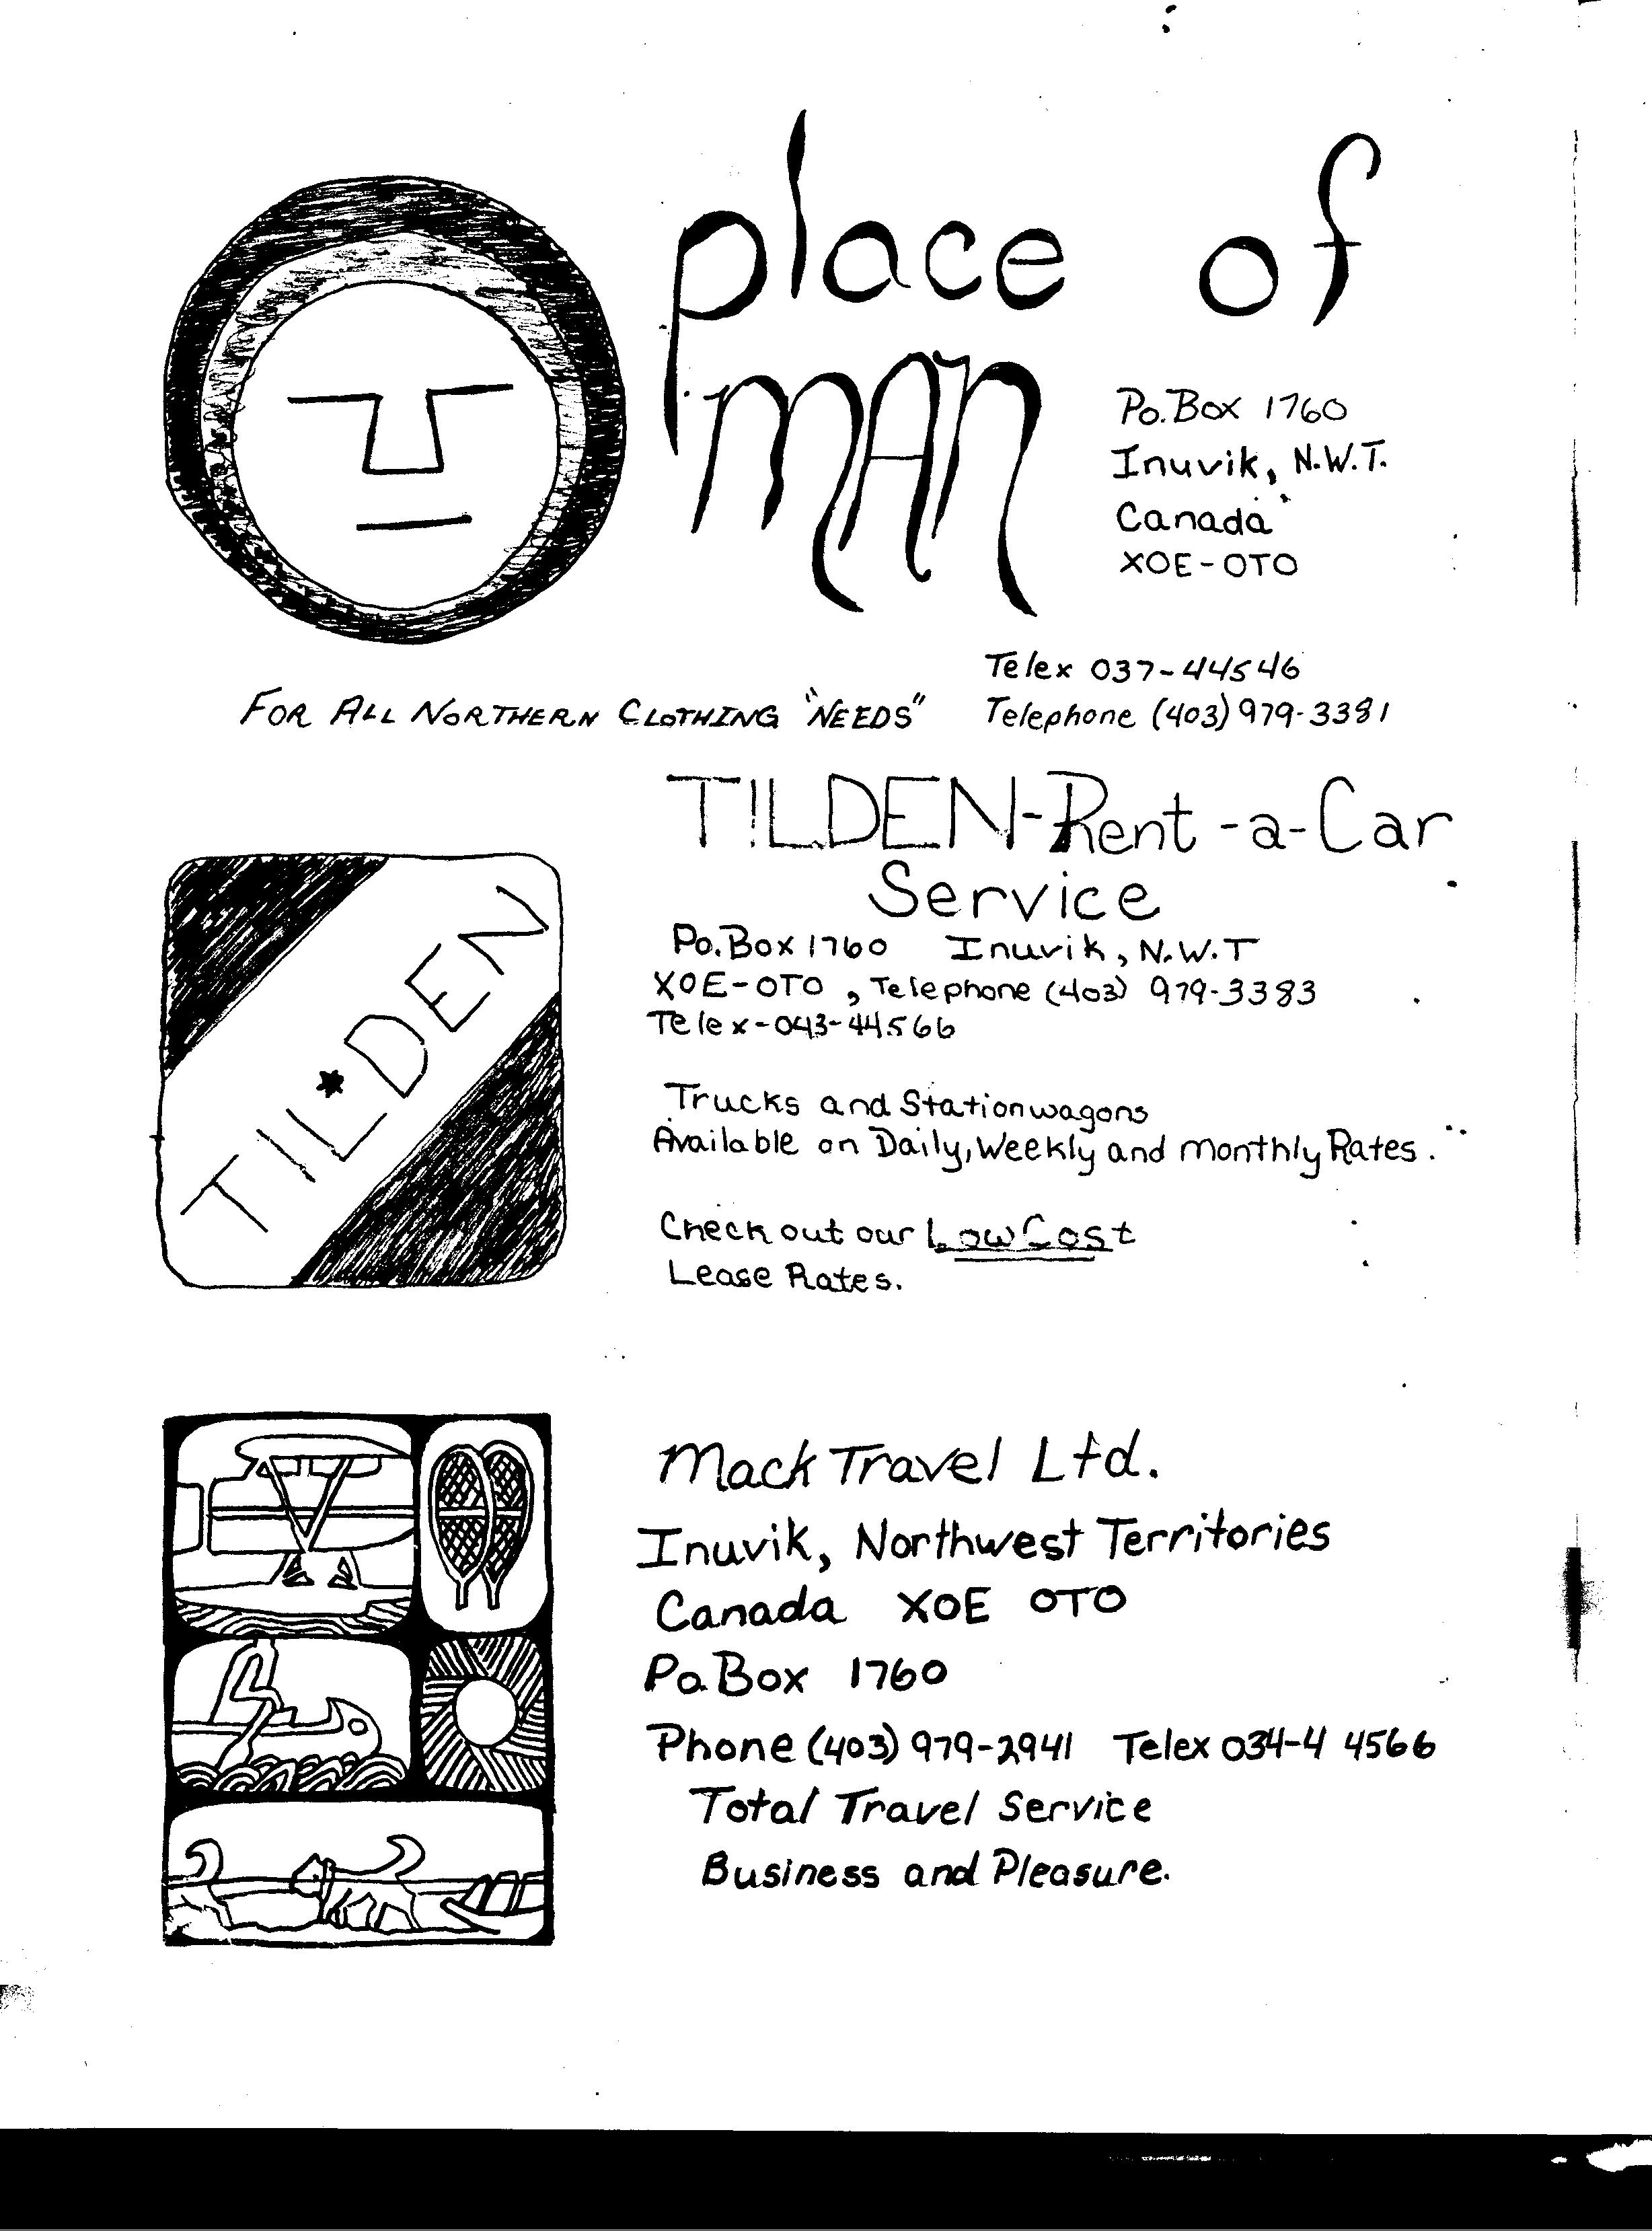 place of
MAN
Po. Box 1760
Inuvik, N.W.T.
Canada
XOE-OTO
Telex 037-44546
FOR ALL NORTHERN CLOTHING "NEEDS"
Telephone (403) 979-3381
TILDEN-Rent-a-Car
Service
TILDEN
Po. Box 1760 Inuvik, N.W.T
XOE-OTO, Telephone (403) 979-3383
Telex-043-44566
Trucks and Stationwagons
Available on Daily, Weekly and monthly Rates.
Check out our Low Cost
Lease Rates.
Mack Travel Ltd.
Inuvik, Northwest Territories
Canada XOE OTO
Po. Box 1760
Phone (403) 979-2941 Telex 034-4 4566
Total Travel Service
Business and Pleasure.